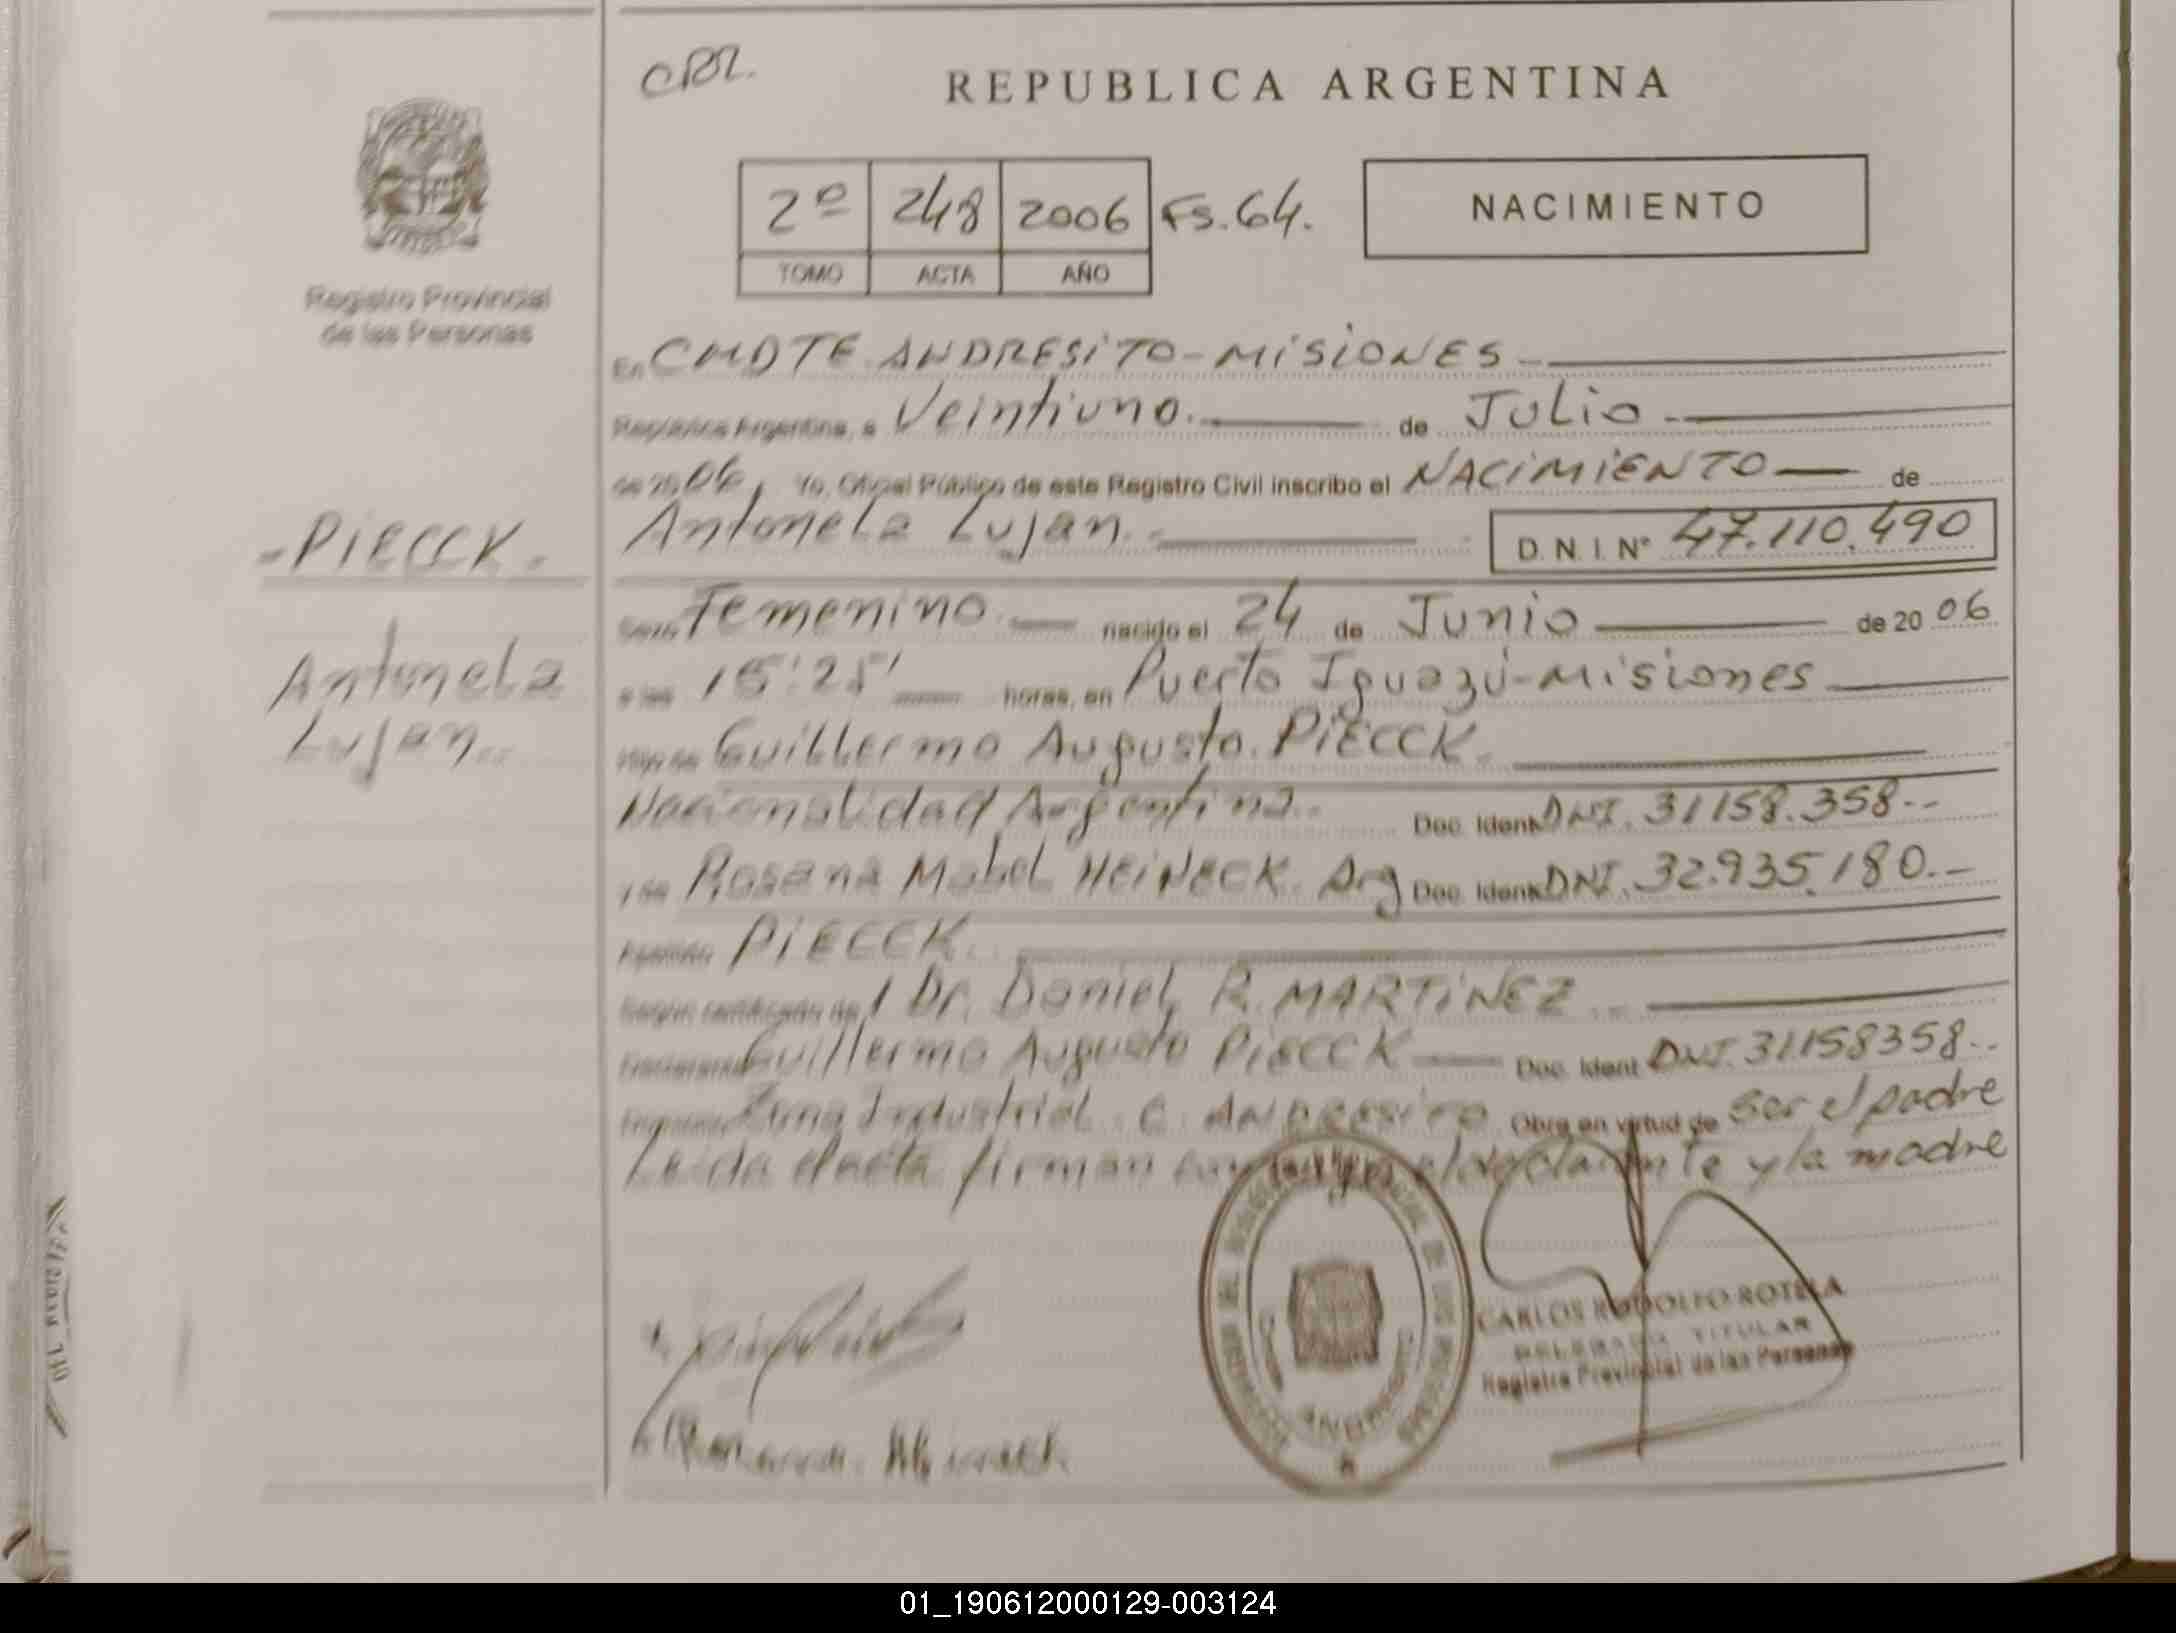 CRR.
REPUBLICA ARGENTINA
2º 248 2006 Fs. 64.
TOMO ACTA AÑO
NACIMIENTO
Registro Provincial
de las Personas
En CMDTE. ANDRESITO - MISIONES
República Argentina, a Veintiuno. de Julio
de 2006, Yo, Oficial Público de este Registro Civil inscribo el NACIMIENTO de
-PIECCK.-
Antonela Lujan. D.N.I. Nº 47.110.490
Sexo Femenino. nacido el 24 de Junio de 2006
Antonela
Lujan..
a las 15:25' horas, en Puerto Iguazú - Misiones
Hijo de Guillermo Augusto. PIECCK.
Nacionalidad Argentina.. Doc. Ident. DNI. 31158.358..
y de Rosana Mabel HEINECK. Arg Doc. Ident. DNI. 32.935.180.-
Apellido PIECCK.
Según certificado de Dr. Daniel R. MARTINEZ
Declarante Guillermo Augusto PIECCK Doc. Ident DNI. 31158358..
Zona Industrial. C. ANDRESITO Obra en virtud de ser el padre
Leida el acta firman conmigo el declarante y la madre
CARLOS RODOLFO ROTELA
DELEGADO TITULAR
Registro Provincial de las Personas
ANDRESITO
01_190612000129-003124